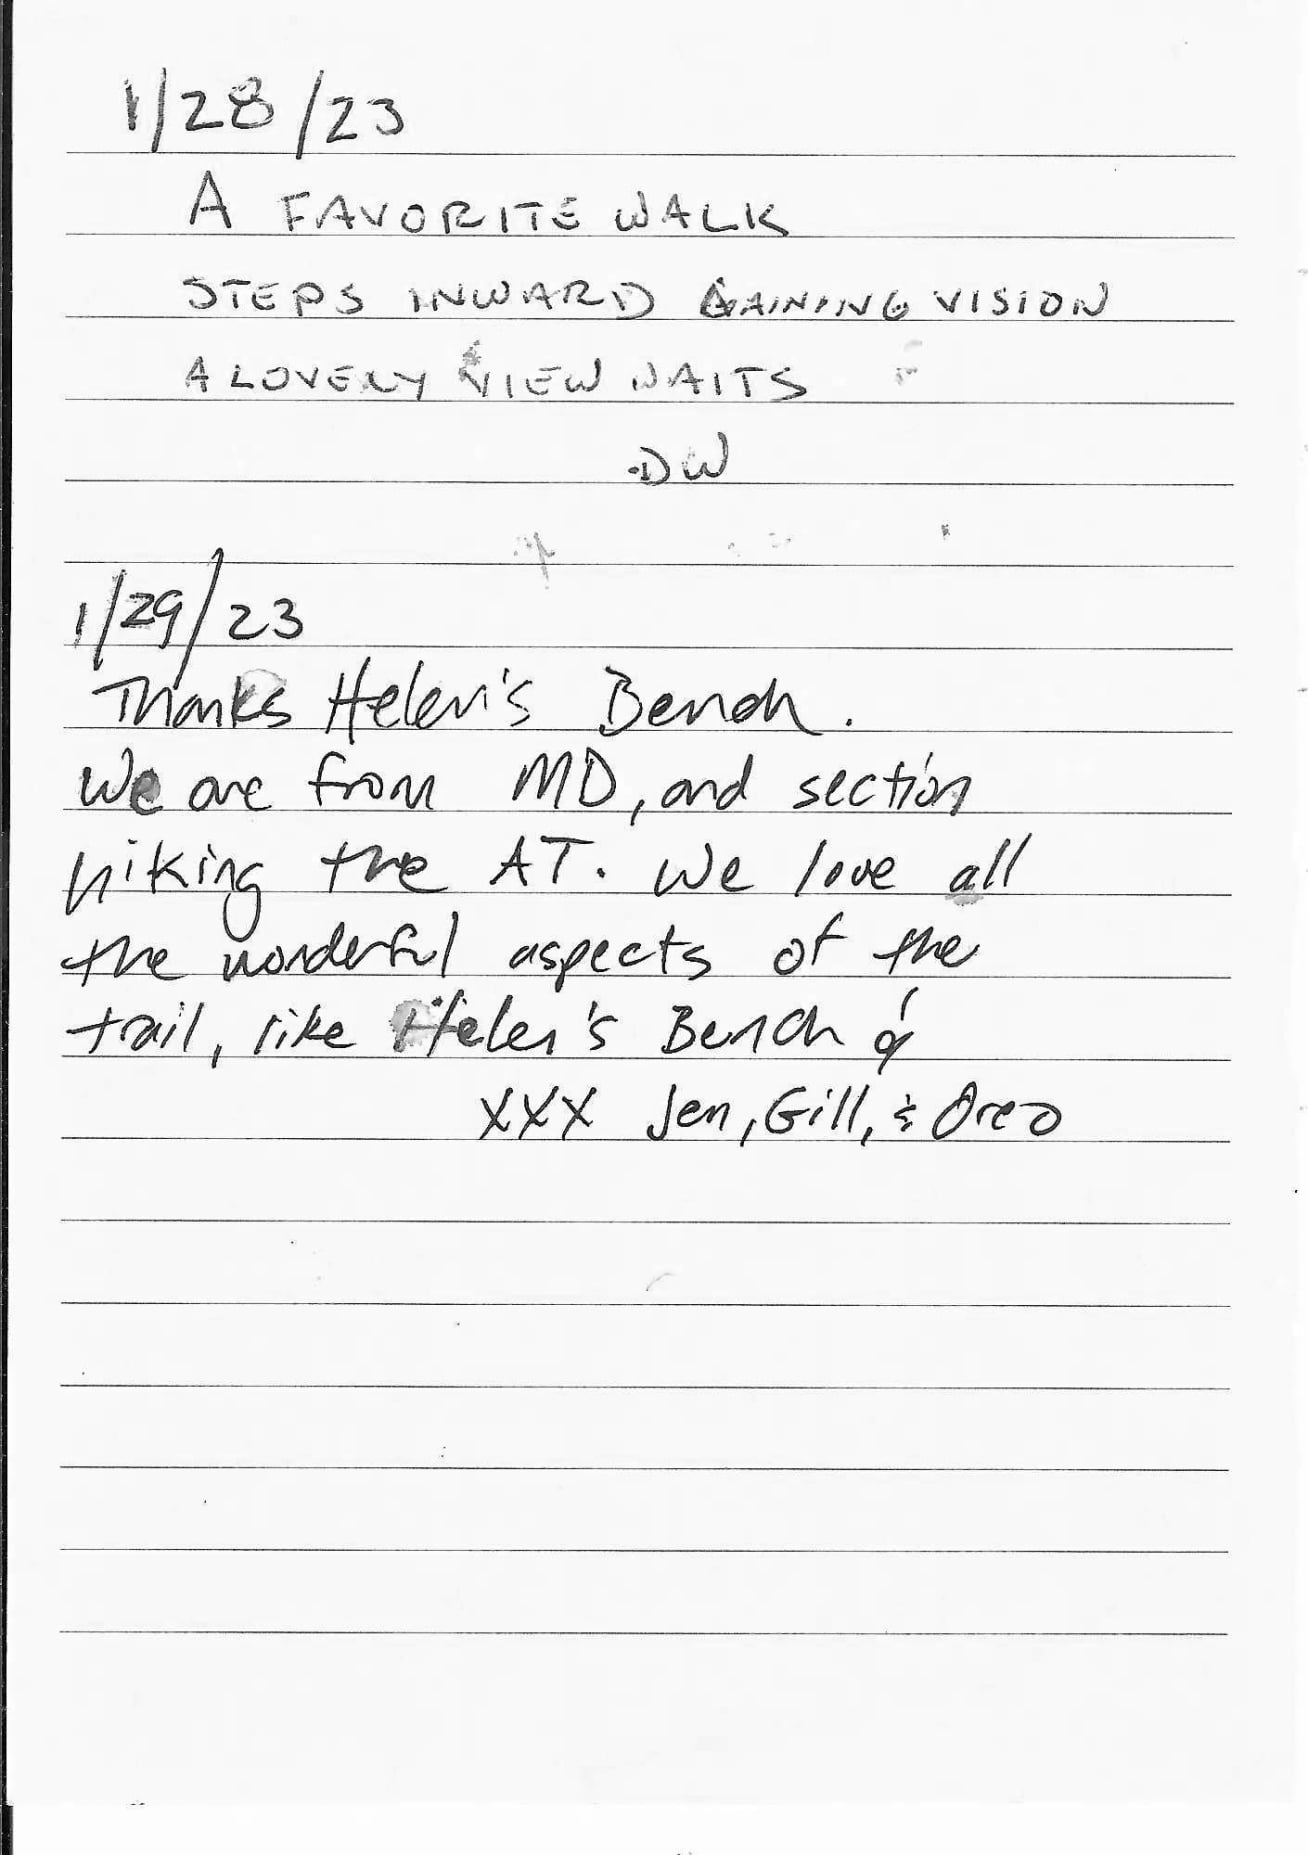 1/28/23
A FAVORITE WALK
STEPS INWARD GAINING VISION
A LOVELY VIEW WAITS
·DW
1/29/23
Thanks Helen's Bench.
We are from MD, and section
hiking the AT. We love all
the wonderful aspects of the
trail, like Helen's Bench!
XXX Jen, Gill, & Oreo